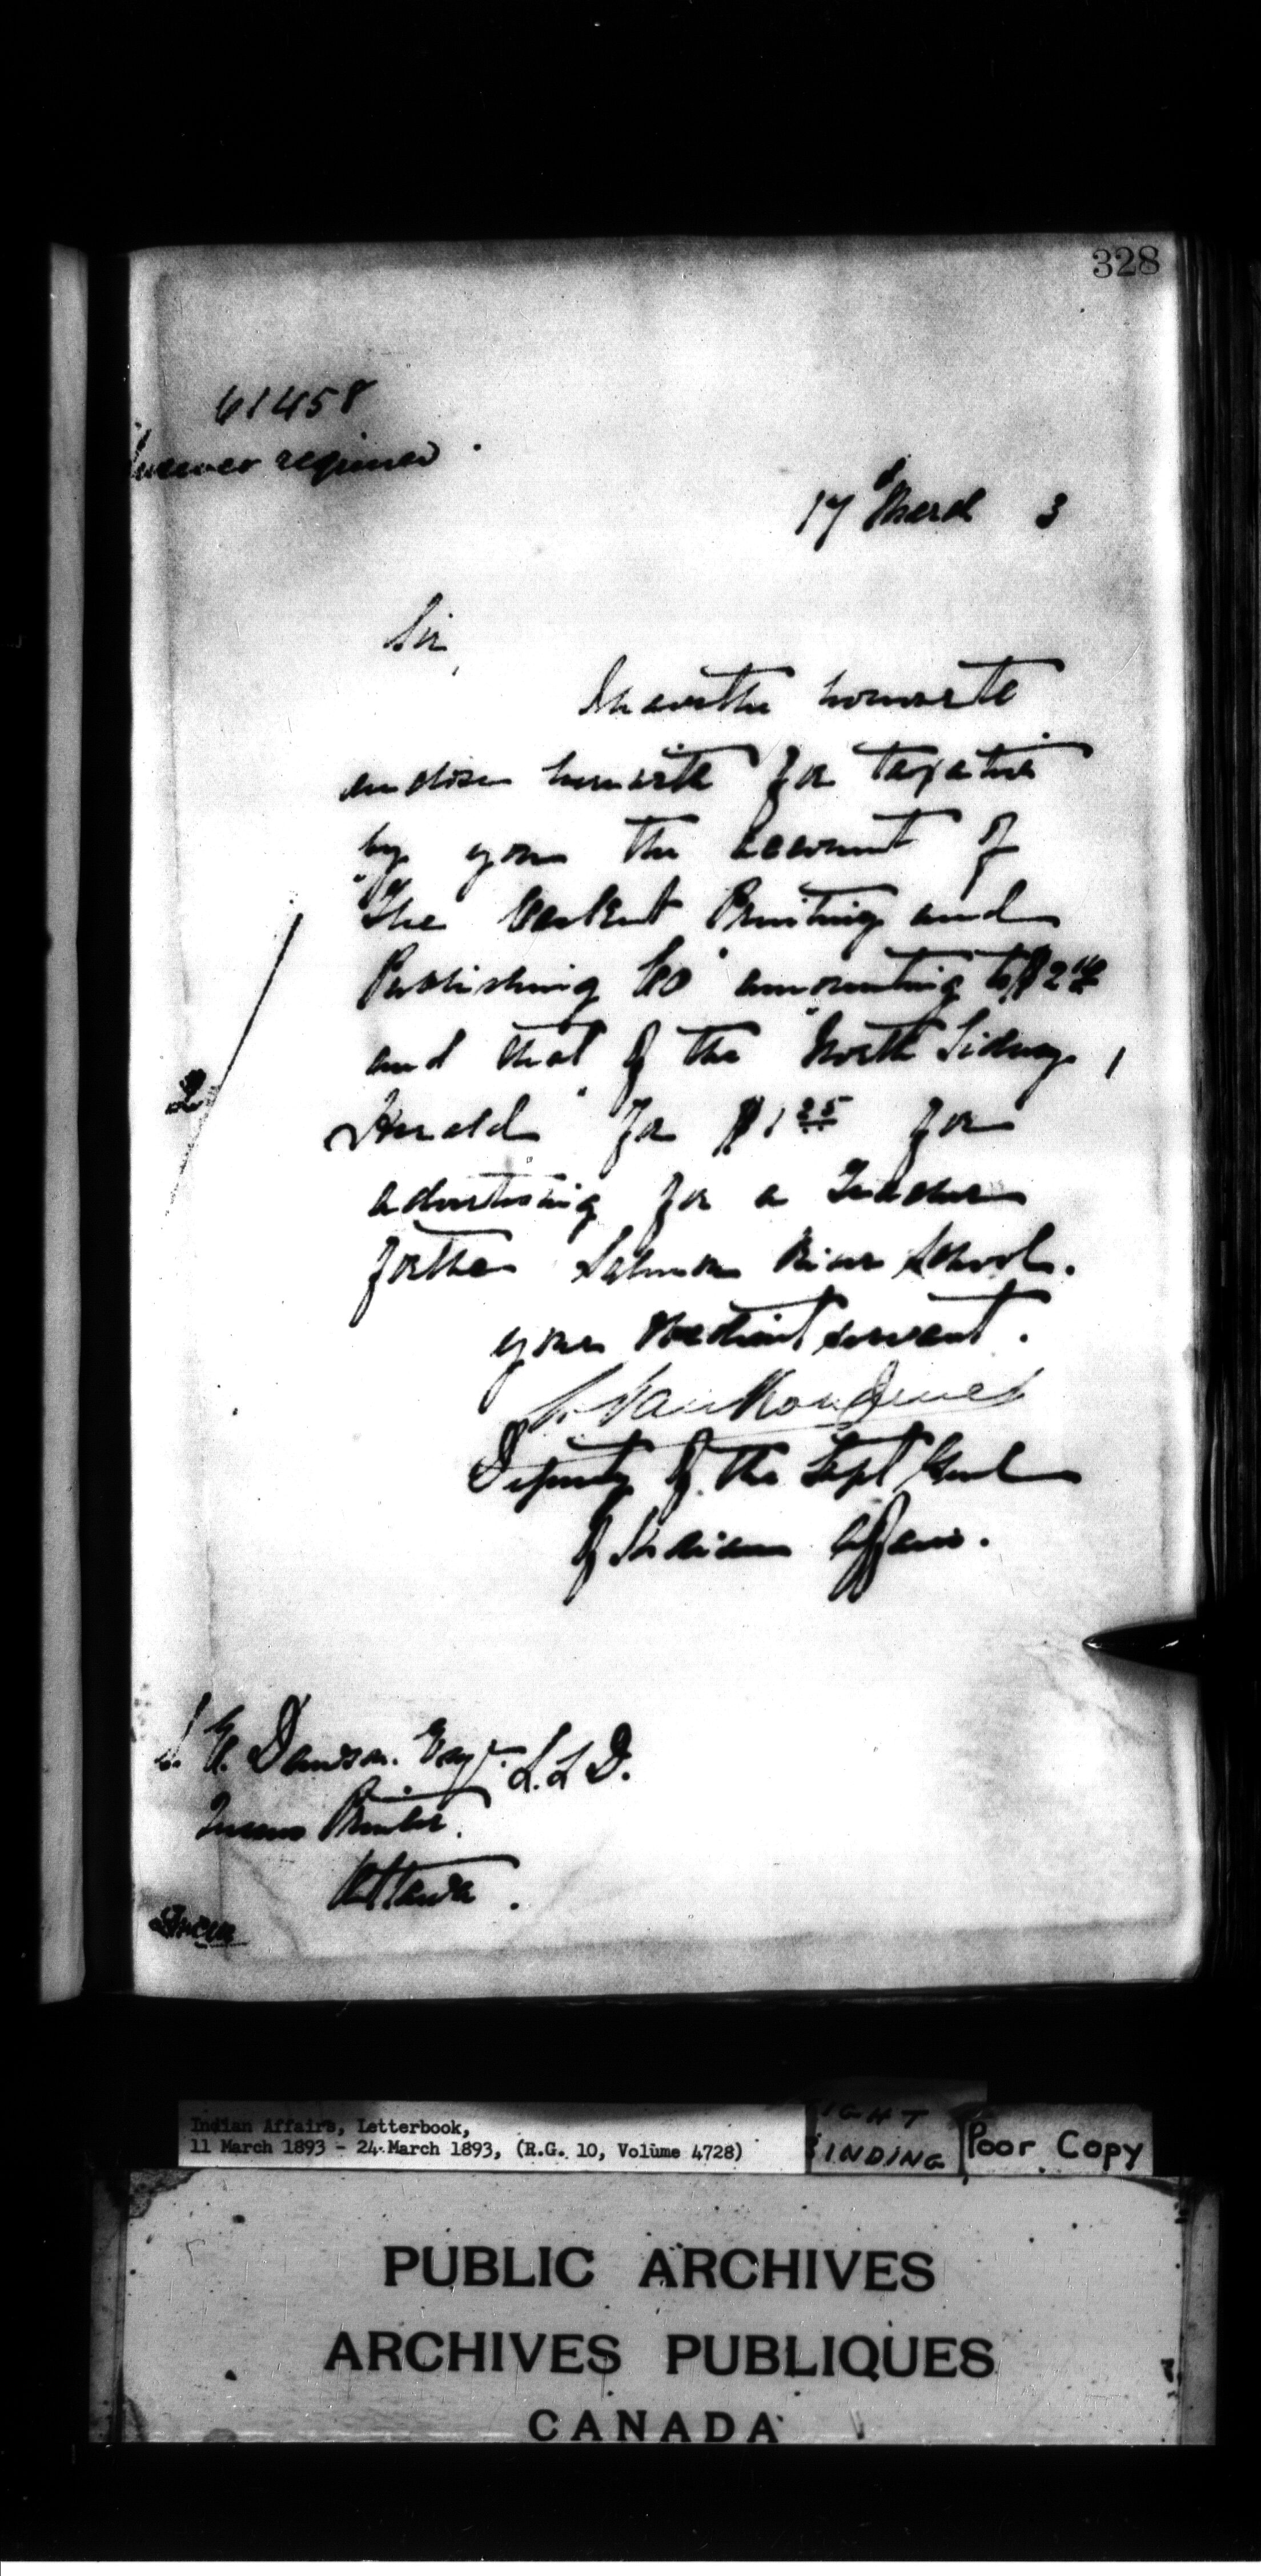 328
61458
Answer required.
17 March 3
Sir,
I have the honor to
enclose herewith for taxation
by you the account of
"The Printing and
Publishing Co" amounting to $2
and that of the "North Sidney
Herald" for $1 25 for
advertising for a Teacher
for the Salmon River School.
your obedient servant.
L. VanKoughnet
Deputy of the Supt Genl
of Indian Affairs.
2
S. E. Dawson. Esqr. L.L.D.
Queens Printer.
Ottawa.
Indian Affairs, Letterbook,
11 March 1893 - 24 March 1893, (R.G. 10, Volume 4728)
IGHT
INDING
Poor Copy
PUBLIC ARCHIVES
ARCHIVES PUBLIQUES
CANADA